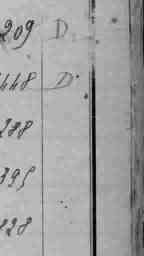 209 D.
448 D.
288
395
828